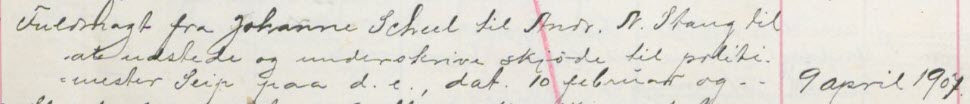 Fuldmagt fra Johanne Scheel til Andr. N. Stang til
at udstede og underskrive skjøde til politi-
=mester Seip paa d. e., dat. 10 februar og -- 9 april 1907.